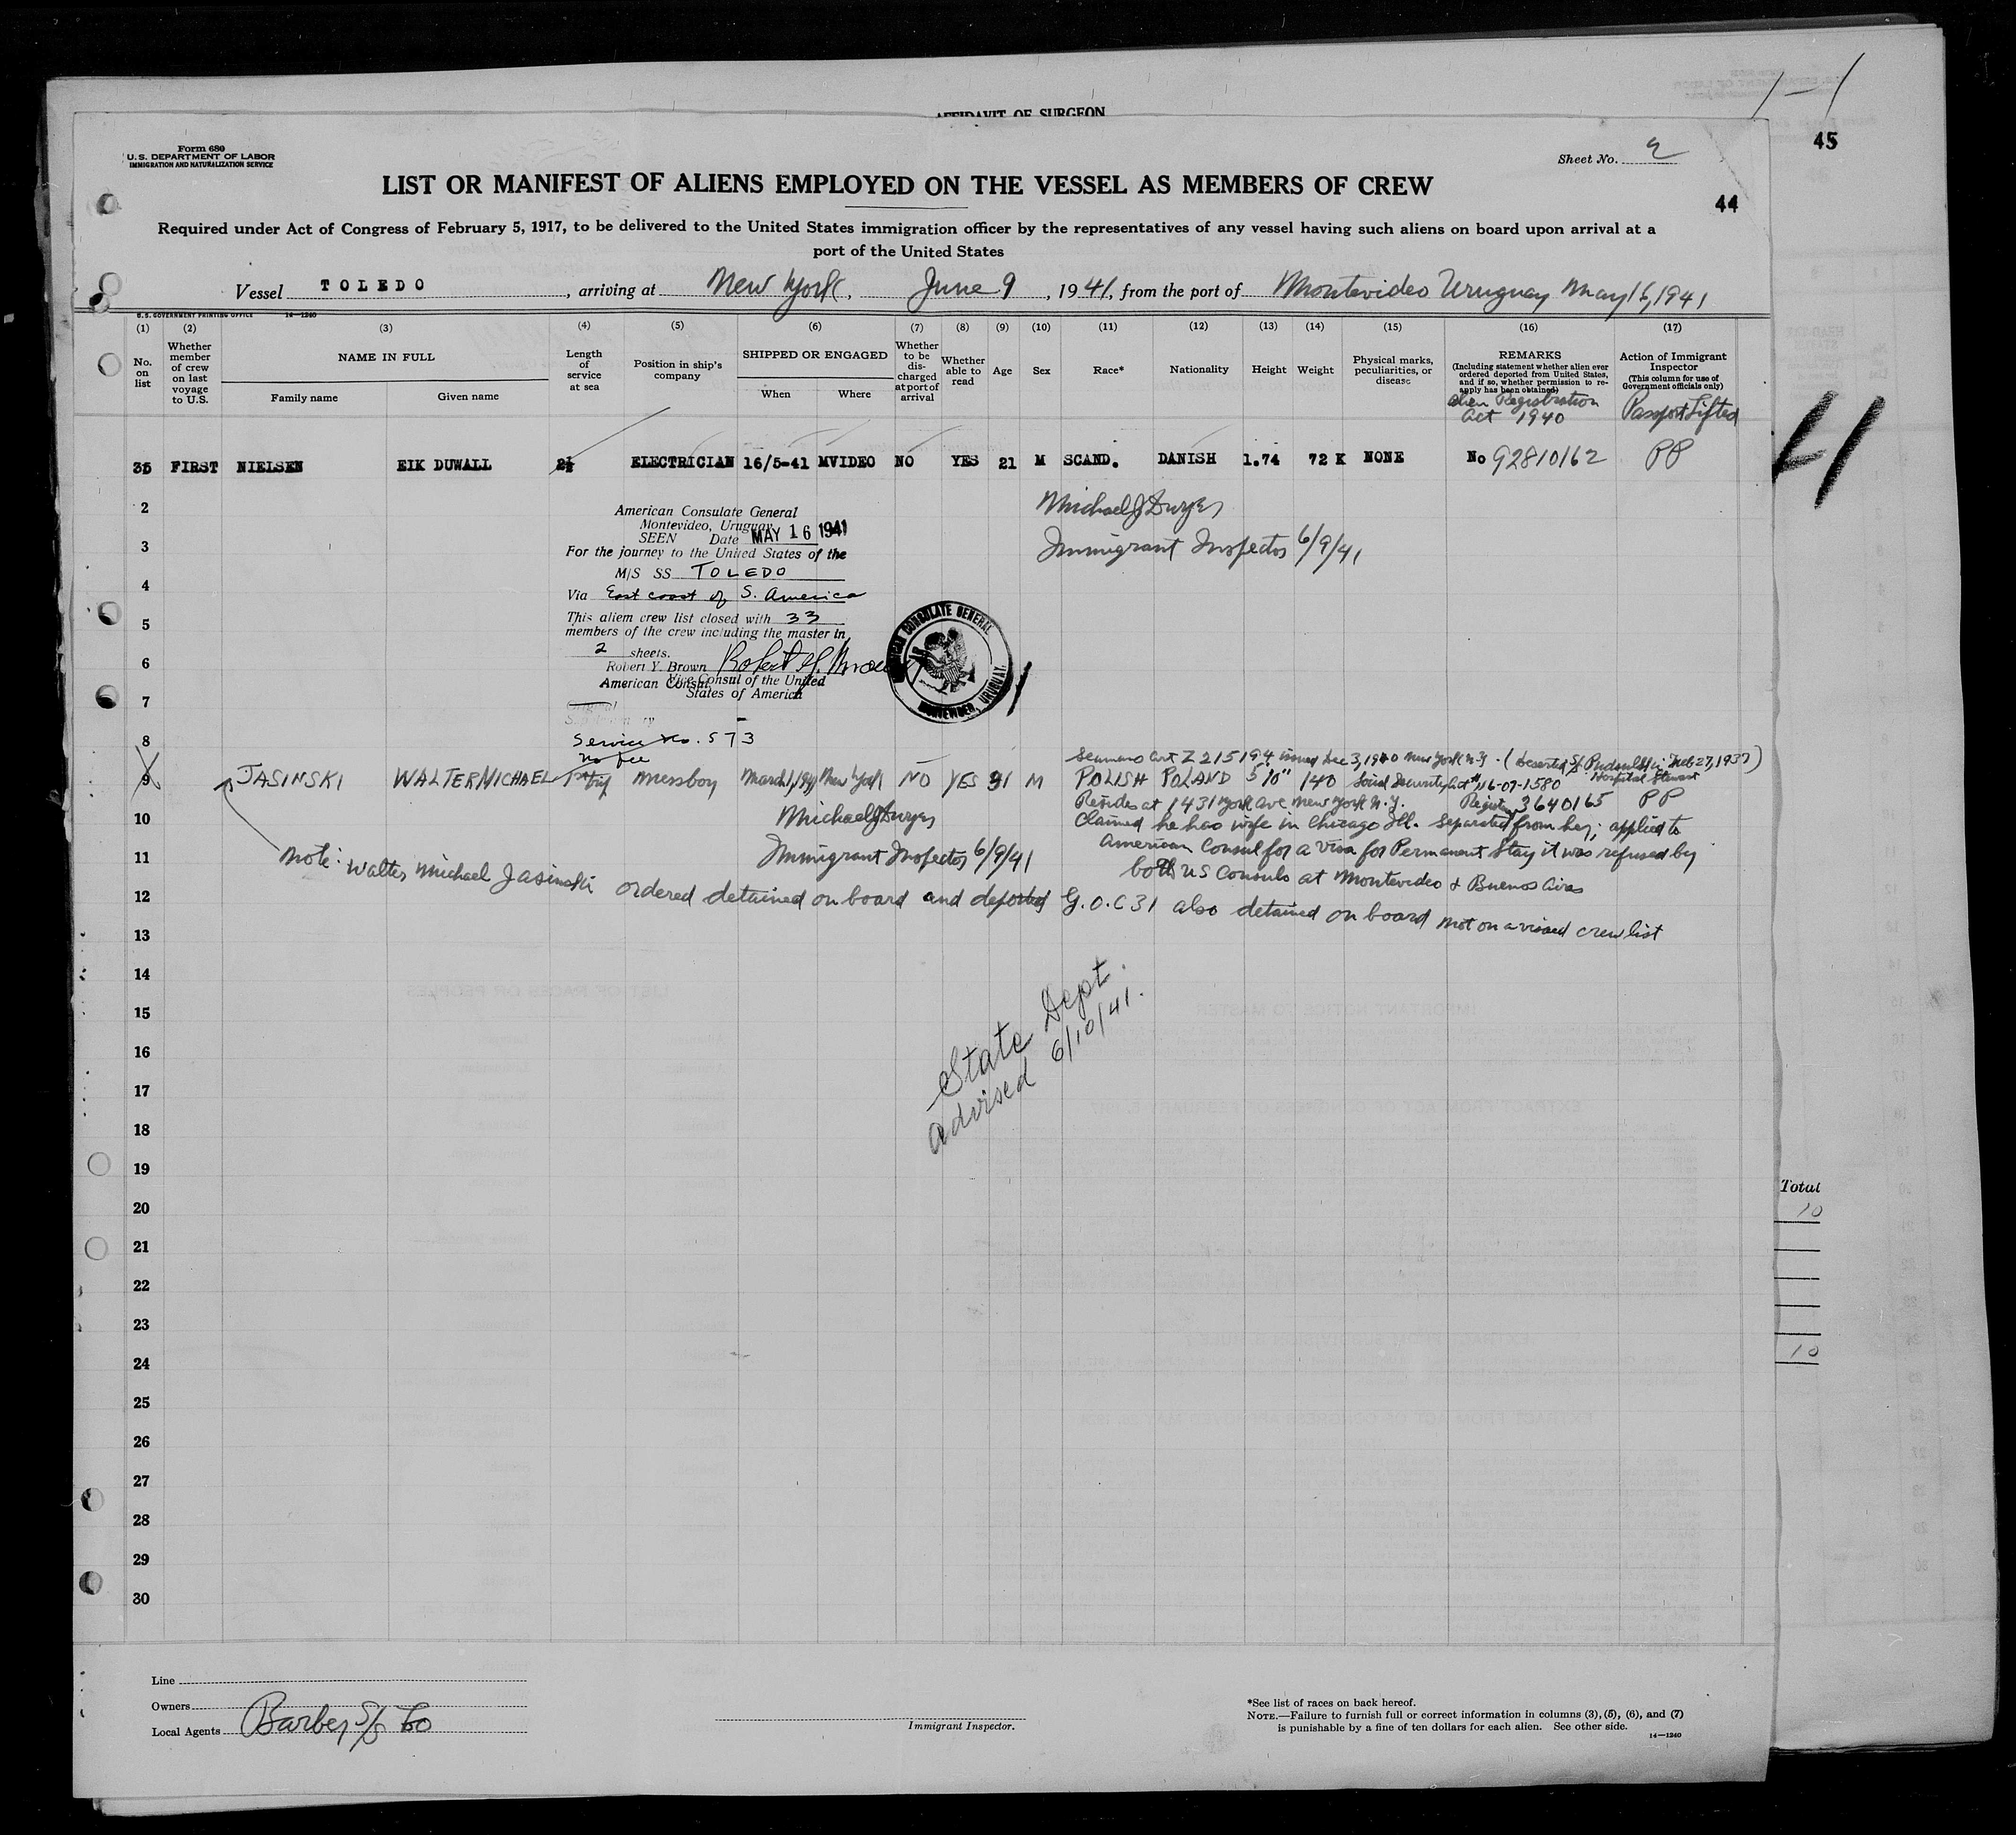 AFFIDAVIT OF SURGEON
1-1
45
Form 680
U. S. DEPARTMENT OF LABOR
IMMIGRATION AND NATURALIZATION SERVICE
Sheet No. 2
LIST OR MANIFEST OF ALIENS EMPLOYED ON THE VESSEL AS MEMBERS OF CREW
44
Required under Act of Congress of February 5, 1917, to be delivered to the United States immigration officer by the representatives of any vessel having such aliens on board upon arrival at a
port of the United States
Vessel TOLEDO, arriving at New York, June 9, 1941, from the port of Montevideo Uruguay May 16, 1941
U. S. GOVERNMENT PRINTING OFFICE 14-1240
(1) (2) (3) (4) (5) (6) (7) (8) (9) (10) (11) (12) (13) (14) (15) (16) (17)
No. on list
Whether member of crew on last voyage to U.S.
NAME IN FULL
Family name
Given name
Length of service at sea
Position in ship's company
SHIPPED OR ENGAGED
When
Where
Whether to be discharged at port of arrival
Whether able to read
Age
Sex
Race*
Nationality
Height
Weight
Physical marks, peculiarities, or disease
REMARKS
(Including statement whether alien ever ordered deported from United States, and if so, whether permission to reapply has been obtained)
Alien Registration
Act 1940
Action of Immigrant Inspector
(This column for use of Government officials only)
Passport Lifted
35 FIRST NIELSEN EIK DUWALL 2½ ELECTRICIAN 16/5-41 MVIDEO NO YES 21 M SCAND. DANISH 1.74 72 K NONE No 92810162 PP
41
2
American Consulate General
Montevideo, Uruguay
SEEN Date MAY 16 1941
For the journey to the United States of the
M/S SS TOLEDO
Via East coast of S. America
This aliem crew list closed with 33
members of the crew including the master in
2 sheets.
Robert Y. Brown Robert Y. Brown
Vice Consul of the United
American Consul
States of America
Service No. 573
No fee
AMERICAN CONSULATE GENERAL
MONTEVIDEO, URUGUAY.
Michael J Dwyer
Immigrant Inspector 6/9/41
3
4
5
6
7
8
Seamans Cert Z 215194 issued Dec 3, 1940 New York N.Y. (Deserted S/S Pilsudski Feb 27, 1937)
Hospital Steward
9 JASINSKI WALTER MICHAEL 1st trip messboy March 1, 1941 New York NO YES 31 M POLISH POLAND 5 10" 140 Social Security Act # 116-07-1580
Resides at 1431 York Ave New York N.Y. Register 3640165 PP
10
Michael J Dwyer
Claimed he has wife in Chicago Ill. separated from her; applied to
American Consul for a Visa for Permanent Stay it was refused by
11
Immigrant Inspector 6/9/41
both US Consuls at Montevideo & Buenos Aires
Note: Walter Michael Jasinski ordered detained on board and deported G.O.C31 also detained on board not on a visaed crew list
12
13
14
State Dept.
advised 6/10/41.
15
16
17
18
19
20
21
22
23
24
25
26
27
28
29
30
Total
10
10
Line
Owners
Local Agents Barber S/S Co
Immigrant Inspector.
*See list of races on back hereof.
NOTE.—Failure to furnish full or correct information in columns (3), (5), (6), and (7)
is punishable by a fine of ten dollars for each alien. See other side.
14-1240